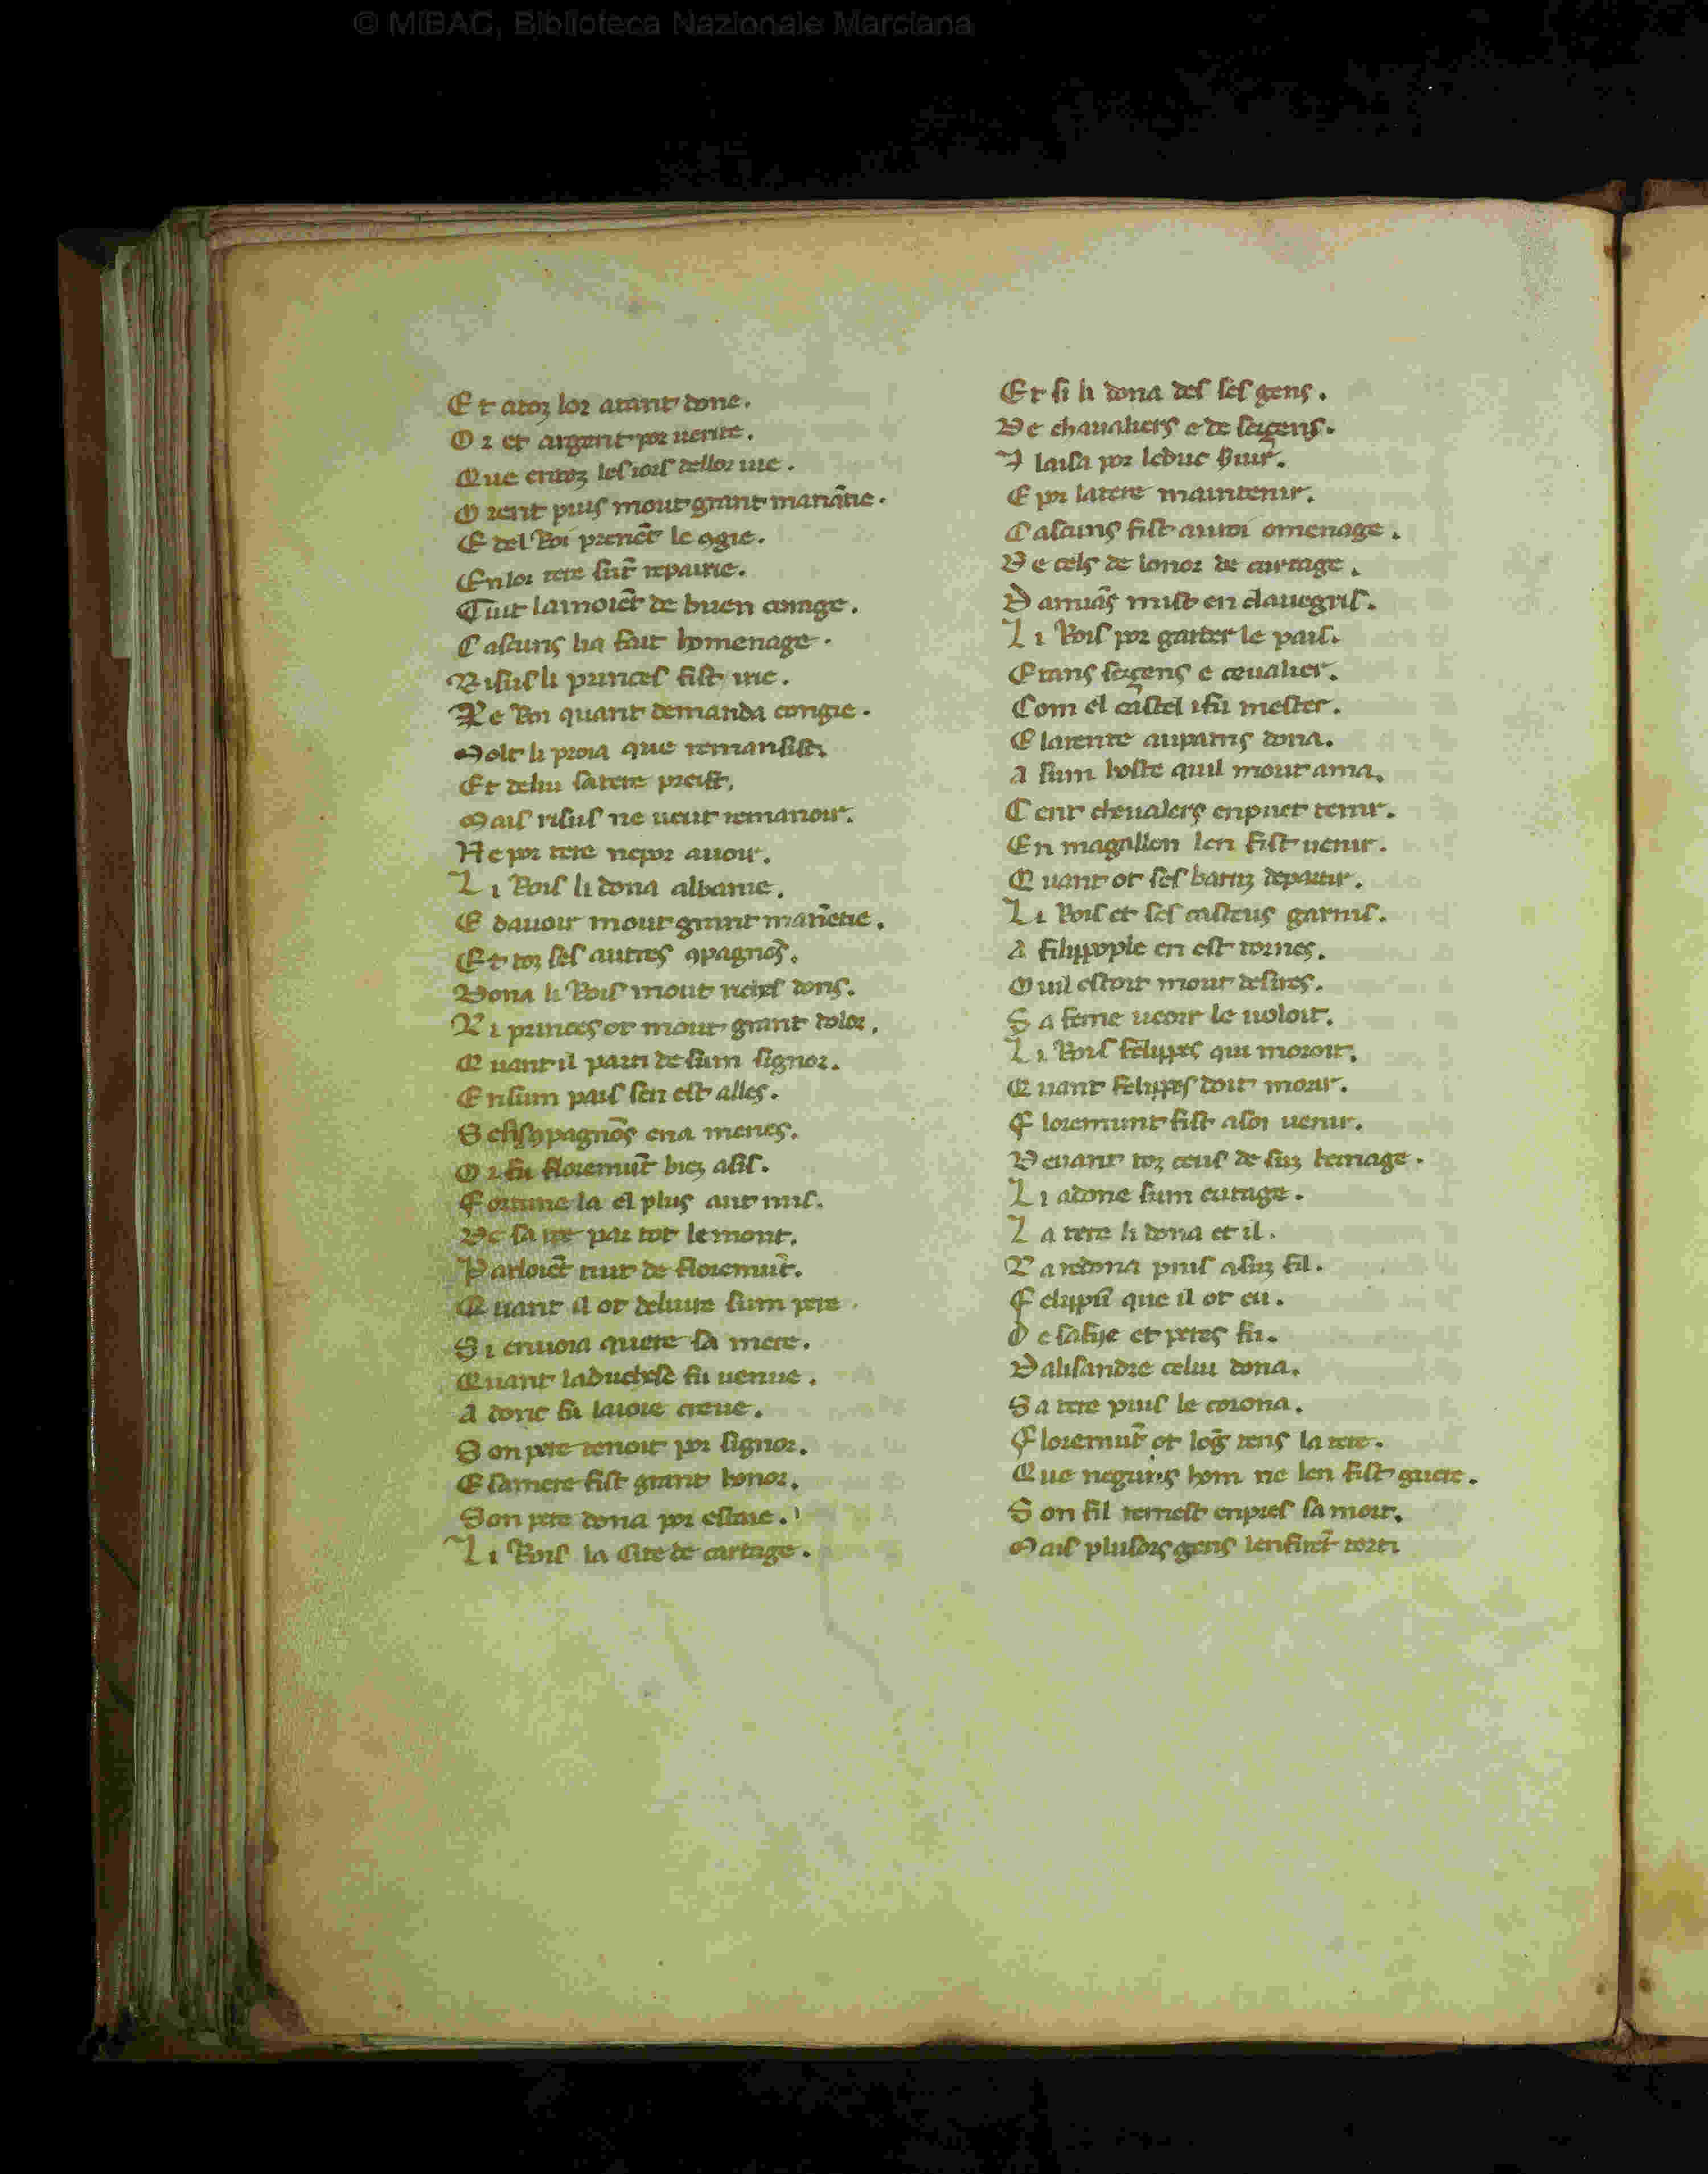 © MiBAC, Biblioteca Nazionale Marciana
Et atoz lor atant done.
Or et argent por uerite.
Que entoz les iors dellor uie.
Orent puis mout grant manātie.
E del Roi prenēt le ꝯgie.
En lor tere sūt repairie.
Tuit lamoiēt de buen corage.
Cascuns lia fait homenage.
Risus li princes fist irie.
Le Roi quant demanda congie.
Molt li proia que remansist.
Et delui satere preist.
Mais risus ne ueut remanoir.
Ne por tere nepor auoir.
Li Rois li dona albanie.
E dauoir mout grant manētie.
Et toz ses autres ꝯpagnōs.
Dona li Rois mout riches dons.
Li princes ot mout grant dolor.
Quant il parti de sum signor.
Ensum pais sen est alles.
Ses ꝯpagnōs ena menes.
Or fu floremūt biez asis.
Fortune la el plus aut mis.
De sa uie par tot le mont.
Parloiēt tuit de floremūt.
Quant il ot deliure sum pere.
Si enuoia querre sa mere.
Quant laduchese fu uenue.
A donc fu laioie creue.
Son pere tenoit por signor.
E samere fist grant honor.
Son pere dona por estaie.
Li Rois la Cite de cartage.
Et si li dona des ses gens.
De chaualiers e de sergens.
I laisa por leduc seruir.
E por latere maintenir.
Cascuns fist auroi omenage.
De cels de lonor de cartage.
Damiās mist en clauegris.
Li Rois por garder le pais.
Etans sergens e ceualier.
Com el castel ifu mester.
E larente auparns dona.
A sum hoste quil mout ama.
Cent cheualers enpuet tenir.
En magallon len fist uenir.
Quant ot ses barnz departir.
Li Rois et ses casteus garnis.
A filippople en est tornes.
Ouil estoit mout desires.
Sa feme ueoir le uoloit.
Li Rois felippes qui moroit.
Quant felippes doit morir.
Floremunt fist asoi uenir.
Deuant toz ceus de suz bernage.
Li adone sum eritage.
La tere li dona et il.
La redona puis asuz fil.
Felippū que il ot eu.
De safije et peres fu.
Dalisandre celui dona.
Sa tere puis le corona.
Floremūt ot lōg tens la tere.
Que neguns hom ne len fist guere.
Son fil remest enpres sa mort.
Mais plusors gens lenfirēt tort.